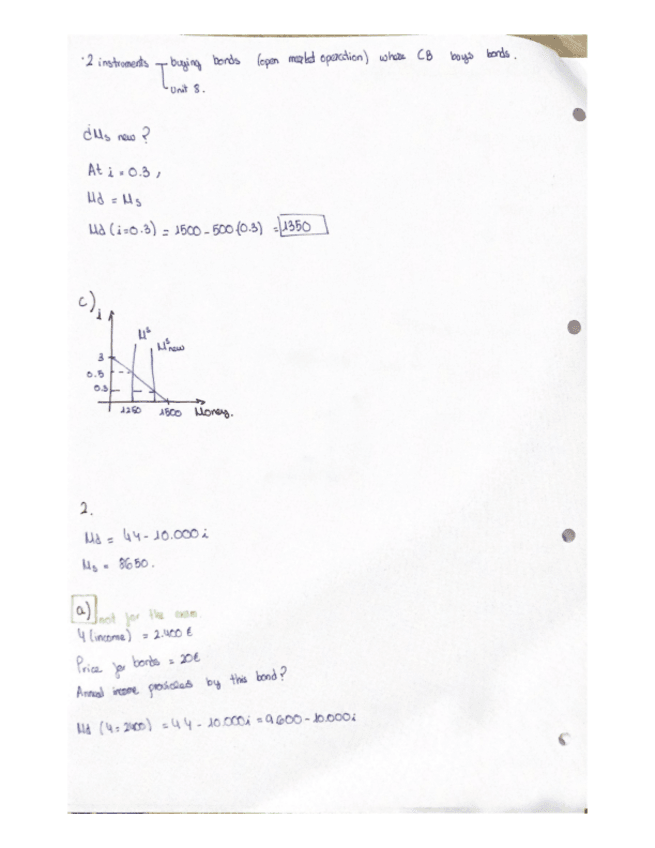 · 2 instruments buying bonds (open market operation) where CB buys bonds.
Unit 8.
¿Ms new?
At i = 0.3,
Md = Ms
Md (i=0.3) = 1500 - 500 (0.3) = 1350
c)
i
Mˢ
Mˢnew
3
0.5
0.3
1250 1500 Money.
2.
Md = 4Y - 10.000i
Ms = 8650.
a) not for the exam.
Y (income) = 2.400 €
Price for bonds = 20€
Annual income provided by this bond?
Md (Y = 2400) = 4Y - 10.000i = 9.600 - 10.000i